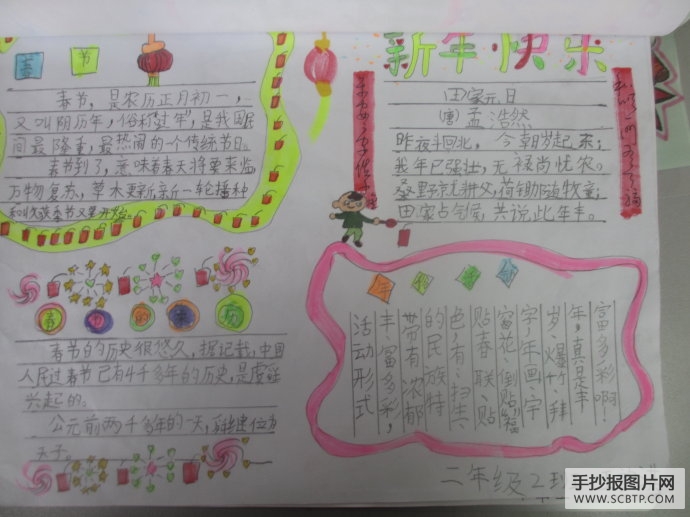 春 节
春节，是农历正月初一，
又叫阴历年，俗称过年，是我国民
间最隆重，最热闹的一个传统节日。
春节到了，意味着春天将要来临，
万物复苏，草木更新，新一轮播种
和收获季节又要开始。
新年快乐
田家元日
唐 孟浩然
昨夜斗回北，今朝岁起东；
我年已强壮，无禄尚忧农。
桑野就耕父，荷锄随牧童；
田家占气候，共说此年丰。
春 的
春节的历史很悠久，据记载，中国
人民过春节已有4千多年的历史，是虞舜
兴起的。
公元前两千多年的一天，舜继位为
天子。
年
富多彩啊！
年，真是丰
岁、爆竹、拜
字，年画、守
窗花、倒贴“福”
贴春联、贴
色，有：扫尘、
的民族特
带有浓郁
丰富多彩，
活动形式
二年级2班
手抄报图片网
WWW.SCBTP.COM